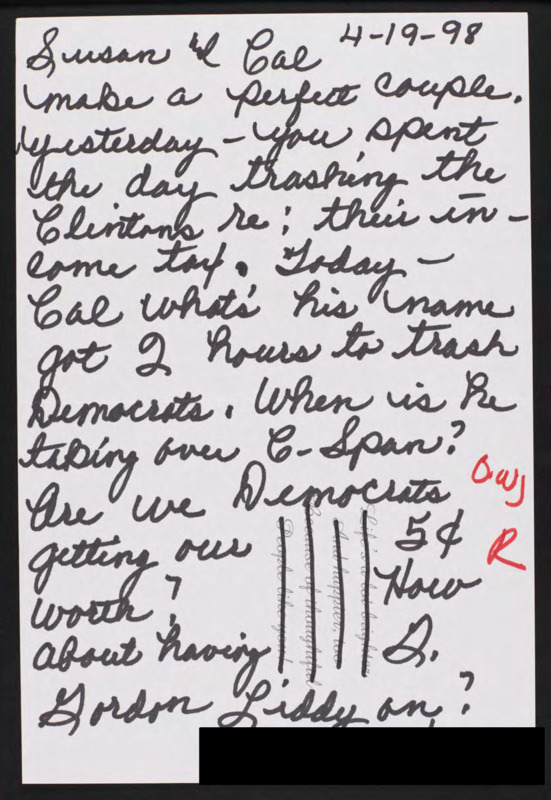 4-19-98
Susan & Cal
make a perfect couple.
Yesterday - you spent
the day trashing the
Clintons re: their in-
come tax. Today -
Cal what's his name
got 2 hours to trash
Democrats. When is he
taking over C-Span?
Are we Democrats
getting our 5¢
worth? How
about having G.
Gordon Liddy on?
R
Life's a lot brighter
And happier, too
Because of thoughtful
People like you!